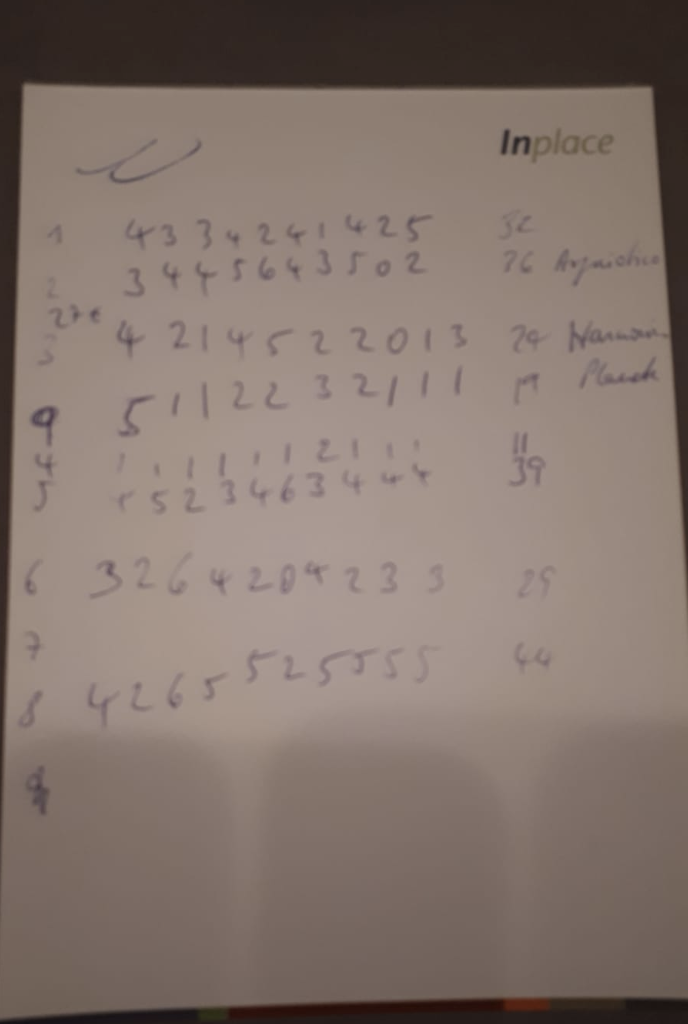 Inplace
1 4 3 3 4 2 4 1 4 2 5 32
2 3 4 4 5 6 4 3 5 0 2 36
27€
3 4 2 1 4 5 2 2 0 1 3 24
9 5 1 1 2 2 3 2 1 1 1 19 Planck
4 1 1 1 1 1 1 2 1 1 1 11
5 5 2 3 4 6 3 4 4 4 39
6 3 2 6 4 2 0 4 2 3 3 29
7
8 4 2 6 5 5 2 5 5 5 5 44
9